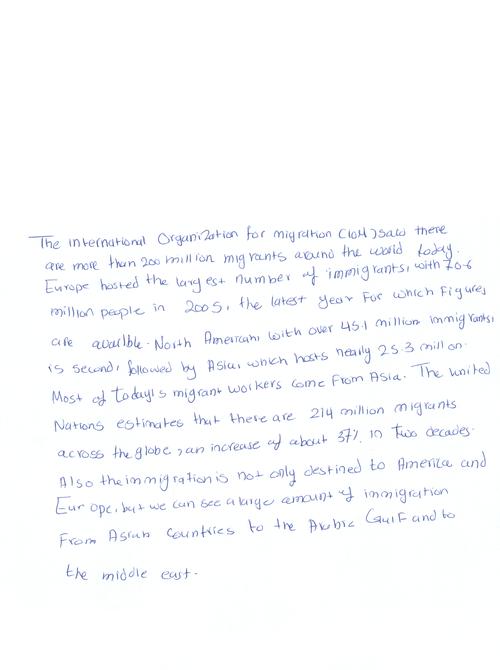 The international Organization for migration (IOM) said there
are more than 200 million migrants around the world today.
Europe hosted the largest number of immigrants, with 70.6
million people in 2005, the latest year for which figures
are availble. North American, with over 45.1 million immigrants,
is second, followed by Asia, which hosts nearly 25.3 million.
Most of today's migrant workers come from Asia. The united
Nations estimates that there are 214 million migrants
across the globe, an increase of about 37% in two decades.
Also the immigration is not only destined to America and
Europe, but we can see a large amount of immigration
From Asian Countries to the Arabic Gulf and to
the middle east.